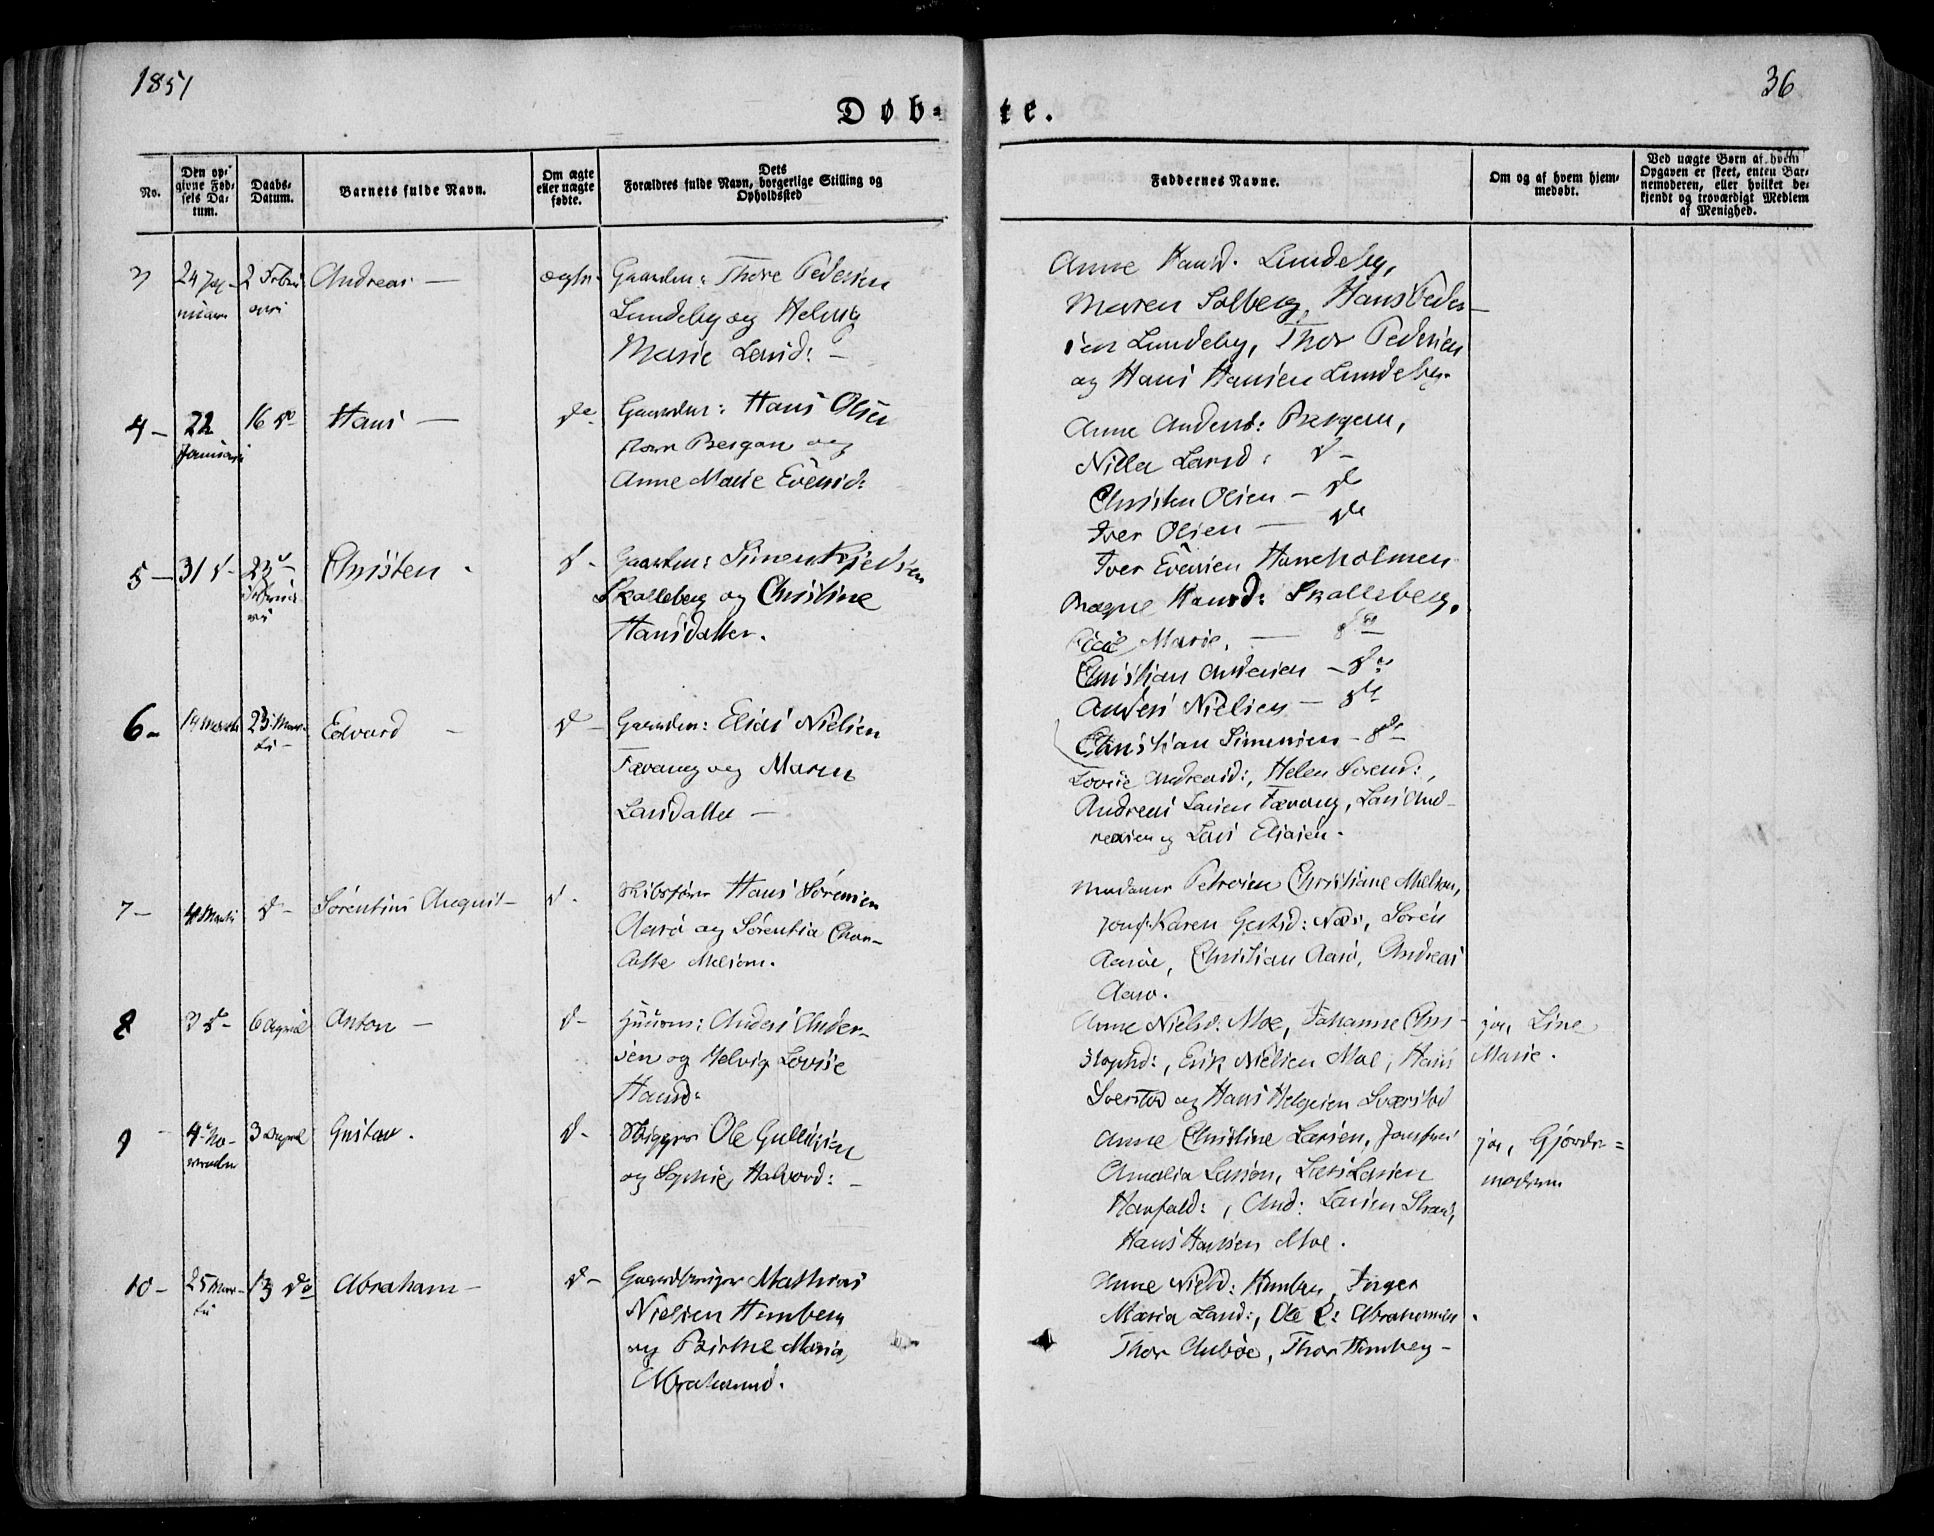 1851
36
Døb=
te.
No.
Den op=
givne Fød=
sels Da=
tum.
Daabs=
Datum.
Barnets fulde Navn.
Om ægte
eller uægte
fødte.
Dets
Forældres fulde Navn, borgerlige Stilling og
Opholdssted
Faddernes Navne.
Om og af hvem hjem=
medøbt.
Ved uægte Børn af hvem
Opgaven er skeet, enten Bar=
nemoderen, eller hvilket be=
kjendt og troværdigt Medlem
af Menighed.
3
24 Ja-
nuar
2 Febru
ari
Andreas —
Gaardm: Thore Pedersen
Lundeby og Helvig
Marie Larsd: —
Anne Hansd. Lundeby,
Maren Solberg, Hans Peder-
sen Lundeby, Thor Pedersen
og Hans Hansen Lundeby.
4 —
22
Januari
16 do
Hans —
do
Gaardm: Hans Olsen
Bergan og
Anne Marie Evensd:
Anne Andersd: Bergan,
Nilla Larsd: d —
Christen Olsen — do
Iver Olsen — do
Iver Evensen Haneholmen
5 —
31 d —
23
Februa
ri
Christen -
d -
Gaardm: Simen Kjeldsen
Skalleberg og Christine
Hansdatter.
Hansd: Skalleberg,
Marie. — do
Christian Andersen — do
Anders Nielsen — do
Christian Simensen — do
6 -
14 Martii
23 Mar-
tii —
Edvard —
d —
Gaardm: Elias Nielsen
Favang og Maren
Larsdatter —
Lovise Andreasd:, Helen Sorensd:,
Andreas Larsen Favang, Lars And-
reasen og Lars Eliasen.
7 —
4 Martii
d —
Sörentius August —
d -
Skibsförer Hans Sörensen
Aarö og Sörentia Char-
lotte Melsom.
Madame Petrea Christiane Melsom,
Jomf: Karen Gertsd: Næs, Sören
Aaröe, Christian Aarö, Andreas
Aarö.
8
3 do —
6 April
Anton —
d —
Huusm: Anders Ander-
sen og Helvig Lovise
Hansd:
Anne Nielsd: Moe, Johanne Chri-
stophd:, Erik Nielsen Moe, Hans
Sverstad og Hans Helgesen Sværstad
ja, Line
Marie.
9
4 No-
vember
3 April
Gustav.
d —
Skipper Ole Gullicsen
og Sophie Halvord: —
Anne Christine Larsen, Jomfrue
Amalia Larsen, Lars Larsen
And: Larsen
Hans Hansen Moe.
ja, Gjorde=
moderen
10 —
25 Mar-
tii
13 do
Abraham —
d —
Gaardbruger Mathias
Nielsen Himberg
og Birthe Maria,
Abrahamsd.
Anne Nielsd: Himberg, Inger
Maria Larsd:, Ole C: Abrahamsen
Thor Aubøe, Thor Himberg —